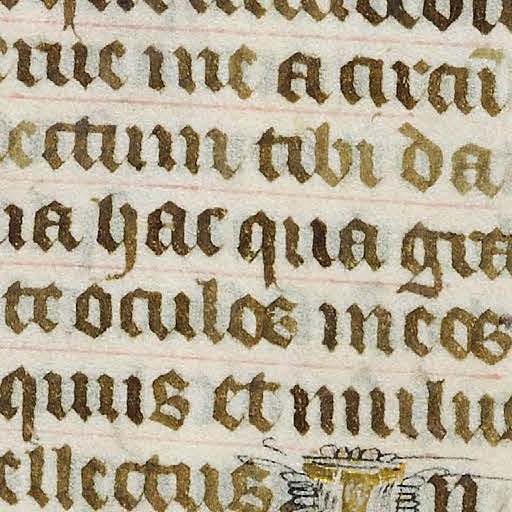 erue me a circū
ectum tibi da
ia hac qua gra
te oculos meos
quus et mulus
ellectus In